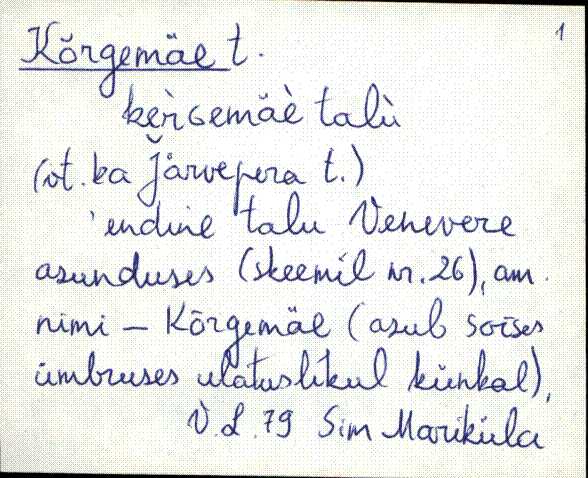 1
Kõrgemäe t.
kèrGemäè talù
(vt. ka Järvepera t.)
endine talu Venevere
asunduses (skeemil nr. 26), am.
nimi – Kõrgemäe (asub soises
ümbruses ulatuslikul künkal),
V.L. 79 Sim Mariküla